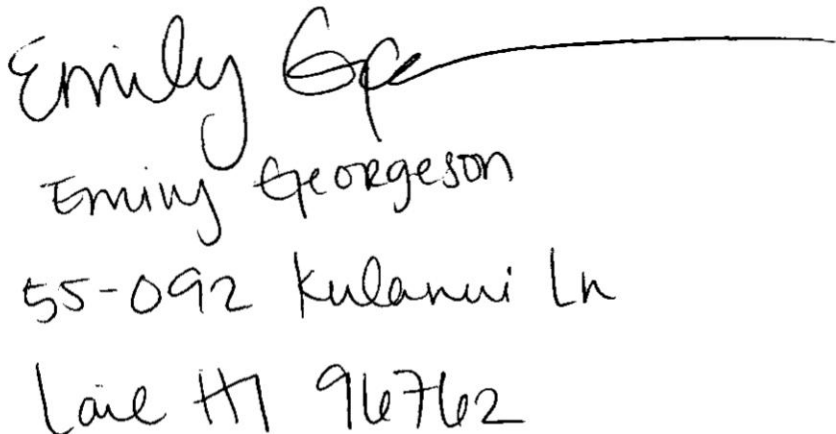 Emily
Emily Georgeson
55-092 Kulanui Ln
Laie HI 96762